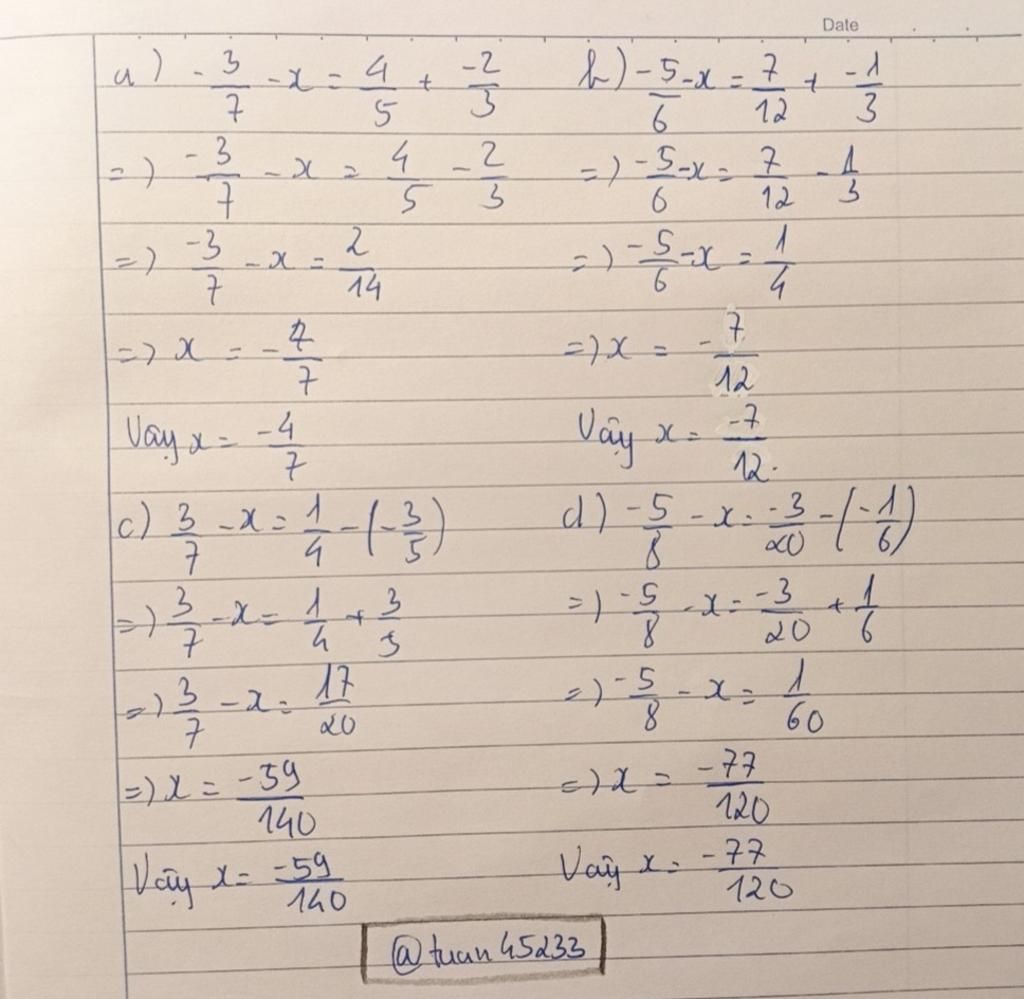 Date
a) -3/7 - x = 4/5 + -2/3
=) -3/7 - x = 4/5 - 2/3
=) -3/7 - x = 2/14
=) x = -4/7
Vậy x = -4/7
b) -5/6 - x = 7/12 + -1/3
=) -5/6 - x = 7/12 - 1/3
=) -5/6 - x = 1/4
=) x = -7/12
Vậy x = -7/12.
c) 3/7 - x = 1/4 - (-3/5)
=) 3/7 - x = 1/4 + 3/5
=) 3/7 - x = 17/20
=) x = -59/140
Vậy x = -59/140
d) -5/8 - x = -3/20 - (-1/6)
=) -5/8 - x = -3/20 + 1/6
=) -5/8 - x = 1/60
=) x = -77/120
Vậy x = -77/120
@tuan45233